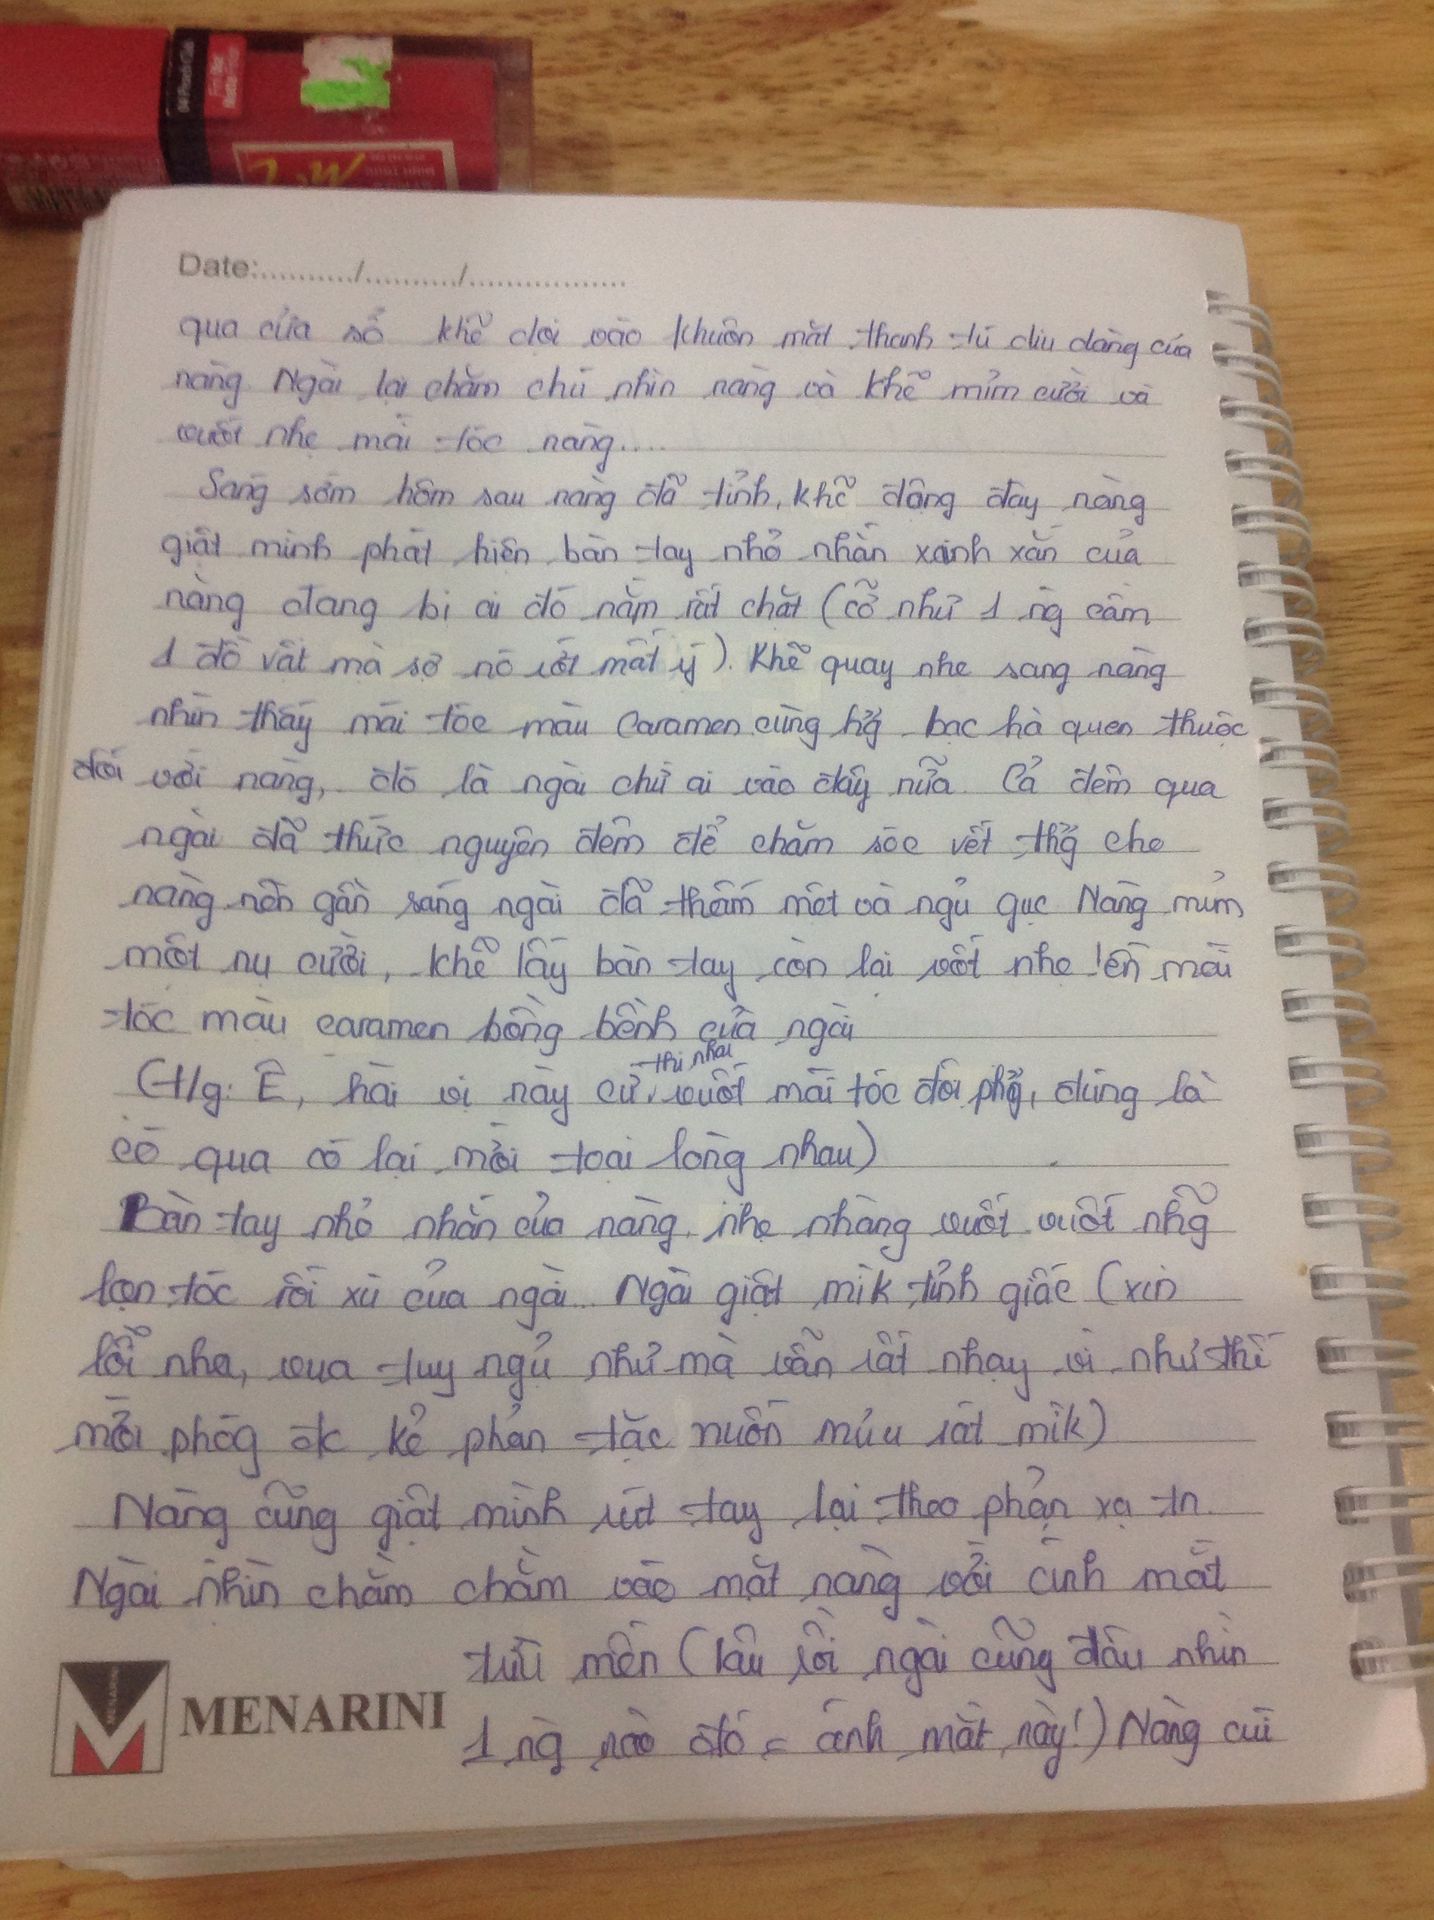 Date:........../........../................
qua cửa sổ khẽ dọi vào khuôn mặt thanh tú dịu dàng của
nàng. Ngài lại chăm chú nhìn nàng và khẽ mỉm cười và
vuốt nhẹ mái tóc nàng....
Sáng sớm hôm sau nàng đã tỉnh, khẽ động đậy nàng
giật mình phát hiện bàn tay nhỏ nhắn xinh xắn của
nàng đang bị ai đó nắm rất chặt (cỡ như 1 ng cầm
1 đồ vật mà sợ nó rớt mất ý). Khẽ quay nhẹ sang nàng
nhìn thấy mái tóc màu caramen cùng hg bạc hà quen thuộc
đối với nàng, đó là ngài chứ ai vào đây nữa. Cả đêm qua
ngài đã thức nguyên đêm để chăm sóc vết thg cho
nàng nên gần sáng ngài đã thấm mệt và ngủ gục Nàng mỉm
một nụ cười, khẽ lấy bàn tay còn lại vuốt nhẹ lên mái
tóc màu caramen bồng bềnh của ngài
(T/g: Ê, hai vị này cứ thi nhau vuốt mái tóc đối phg, đúng là
có qua có lại mới toại lòng nhau)
Bàn tay nhỏ nhắn của nàng nhẹ nhàng vuốt vuốt nhg
lọn tóc rối xù của ngài. Ngài giật mik tỉnh giấc (xin
lỗi nha, vua tuy ngủ như mà vẫn rất nhạy vì như thế
mới phòg đk kẻ phản tặc muốn mưu sát mik)
Nàng cũng giật mình rút tay lại theo phản xạ tn
Ngài nhìn chằm chằm vào mặt nàng với ánh mắt
trìu mến (lâu rồi ngài cũng đâu nhìn
1 ng nào đó = ánh mắt này!) Nàng cúi
MENARINI